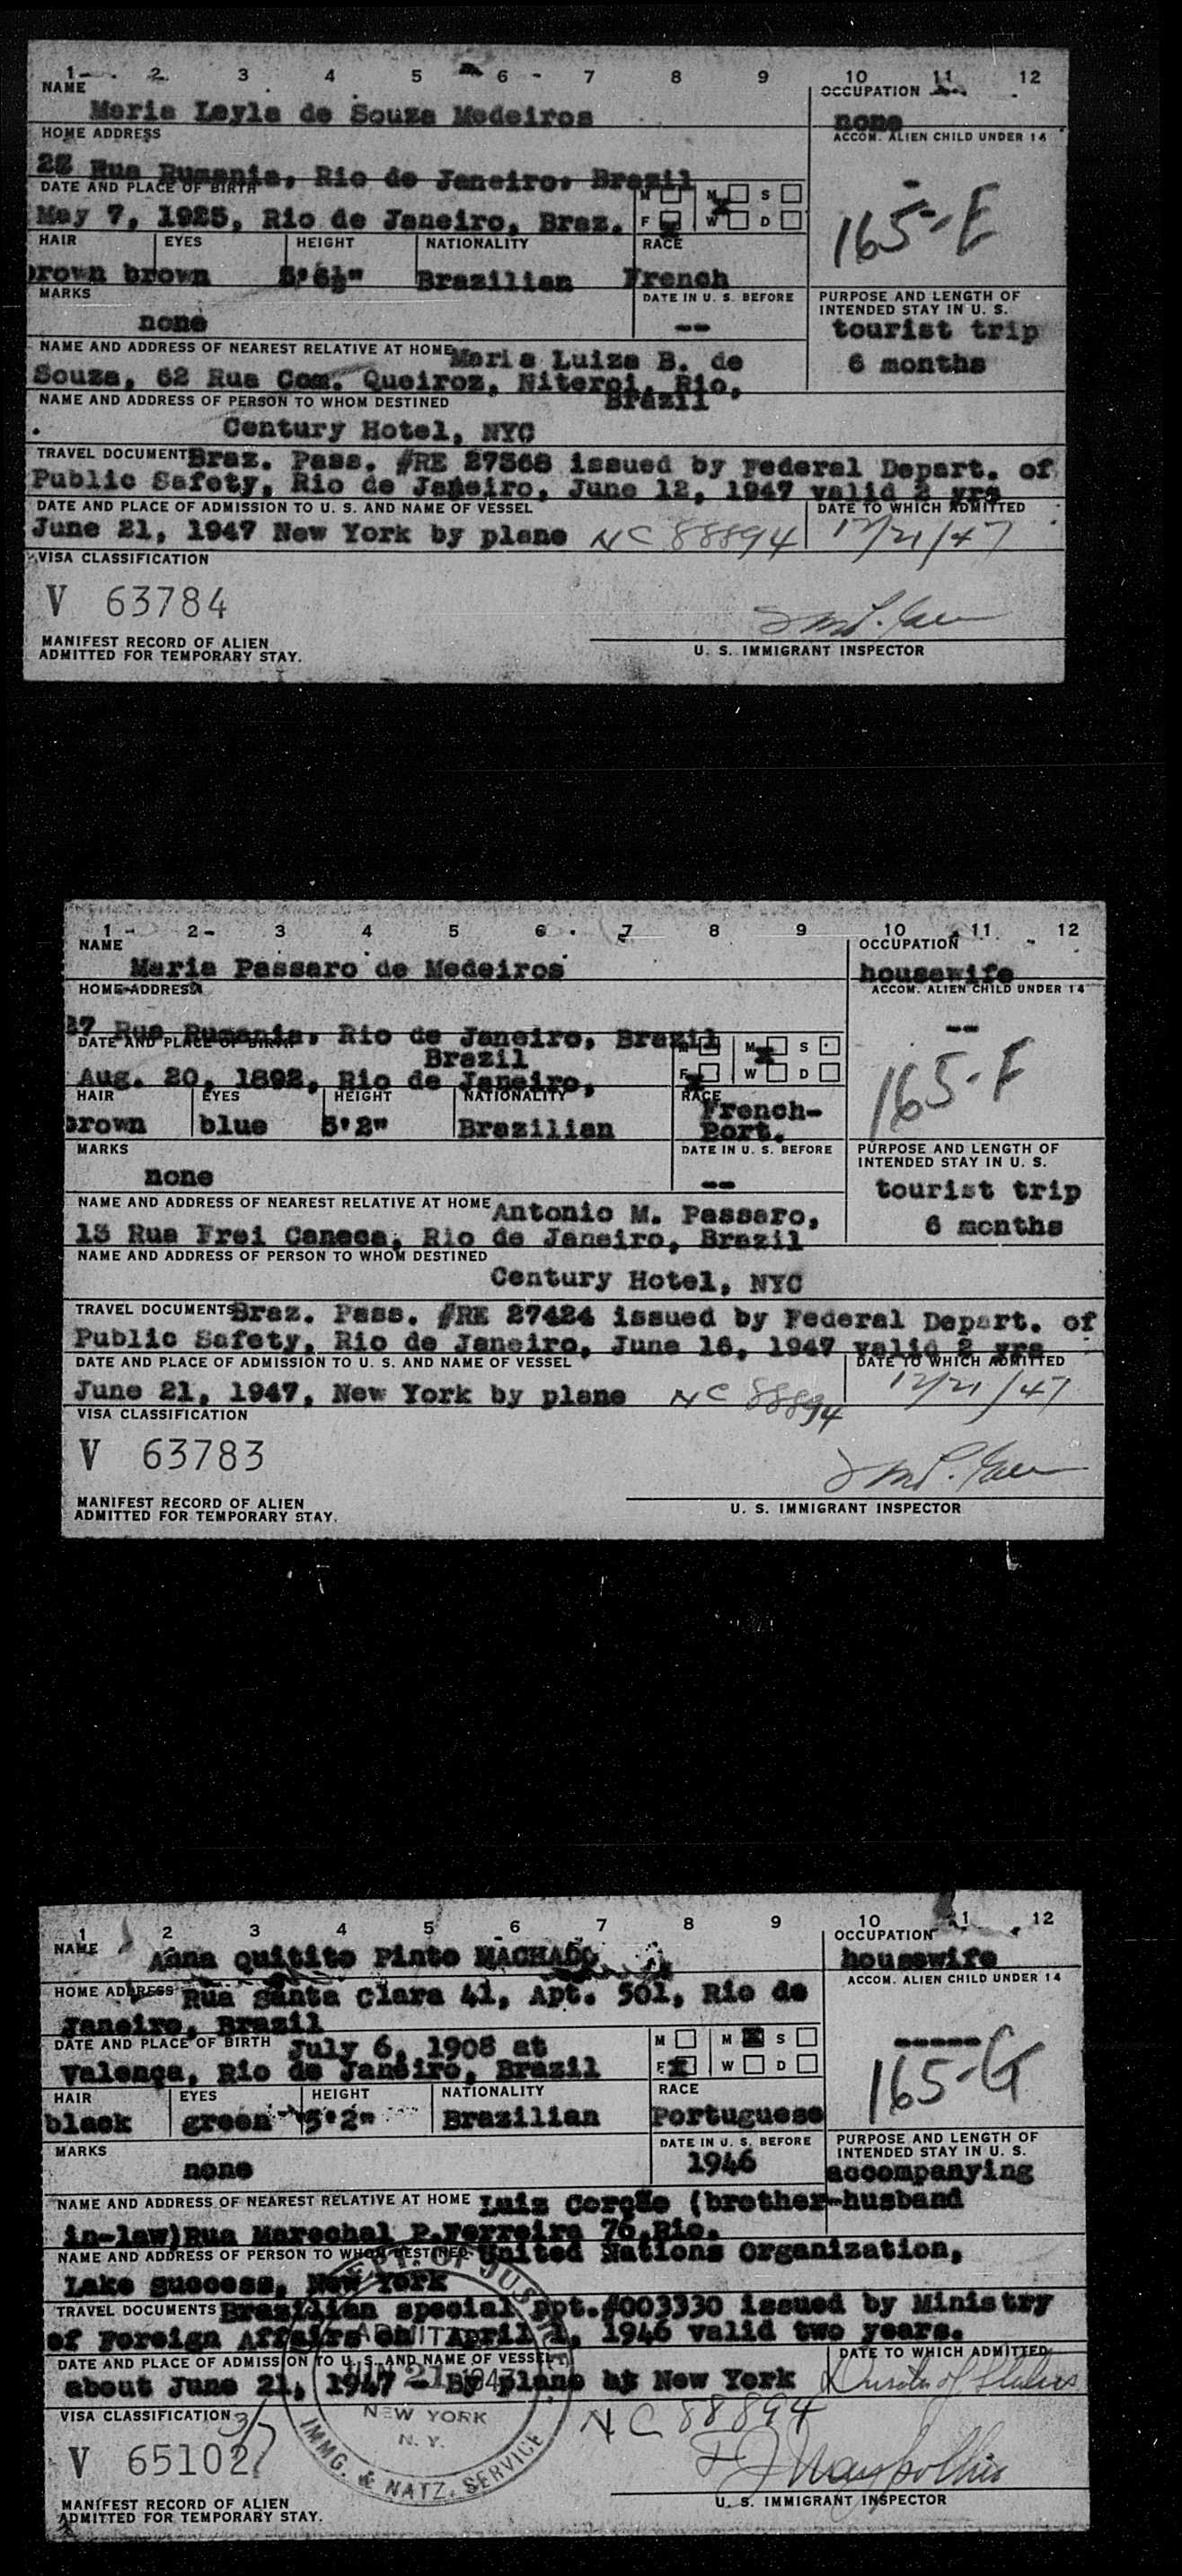 1 2 3 4 5 6 7 8 9 10 11 12
NAME OCCUPATION
Maria Leyla de Souza Medeiros none
HOME ADDRESS ACCOM. ALIEN CHILD UNDER 14
22 Rua Rumania, Rio de Janeiro, Brazil -
DATE AND PLACE OF BIRTH M M S
May 7, 1925, Rio de Janeiro, Braz. F W D 165-E
HAIR EYES HEIGHT NATIONALITY RACE
brown brown 5'6½" Brazilian French
MARKS DATE IN U. S. BEFORE PURPOSE AND LENGTH OF INTENDED STAY IN U. S.
none -- tourist trip
NAME AND ADDRESS OF NEAREST RELATIVE AT HOME Maria Luiza B. de 6 months
Souza, 62 Rua Com. Queiroz, Niteroi, Rio,
NAME AND ADDRESS OF PERSON TO WHOM DESTINED Brazil
Century Hotel, NYC
TRAVEL DOCUMENT Braz. Pass. #RE 27368 issued by Federal Depart. of
Public Safety, Rio de Janeiro, June 12, 1947 valid 2 yrs
DATE AND PLACE OF ADMISSION TO U. S. AND NAME OF VESSEL DATE TO WHICH ADMITTED
June 21, 1947 New York by plane NC 88894 12/21/47
VISA CLASSIFICATION
V 63784
MANIFEST RECORD OF ALIEN
ADMITTED FOR TEMPORARY STAY. U. S. IMMIGRANT INSPECTOR
1 2 3 4 5 6 7 8 9 10 11 12
NAME OCCUPATION
Maria Passaro de Medeiros housewife
HOME ADDRESS ACCOM. ALIEN CHILD UNDER 14
27 Rua Rumania, Rio de Janeiro, Brazil --
DATE AND PLACE OF BIRTH Brazil M M S
Aug. 20, 1892, Rio de Janeiro, F W D 165-F
HAIR EYES HEIGHT NATIONALITY RACE
brown blue 5'2" Brazilian French-Port.
MARKS DATE IN U. S. BEFORE PURPOSE AND LENGTH OF INTENDED STAY IN U. S.
none -- tourist trip
NAME AND ADDRESS OF NEAREST RELATIVE AT HOME Antonio M. Passaro, 6 months
13 Rua Frei Caneca, Rio de Janeiro, Brazil
NAME AND ADDRESS OF PERSON TO WHOM DESTINED
Century Hotel, NYC
TRAVEL DOCUMENTS Braz. Pass. #RE 27424 issued by Federal Depart. of
Public Safety, Rio de Janeiro, June 16, 1947 valid 2 yrs
DATE AND PLACE OF ADMISSION TO U. S. AND NAME OF VESSEL DATE TO WHICH ADMITTED
June 21, 1947, New York by plane NC 88894 12/21/47
VISA CLASSIFICATION
V 63783
MANIFEST RECORD OF ALIEN
ADMITTED FOR TEMPORARY STAY. U. S. IMMIGRANT INSPECTOR
1 2 3 4 5 6 7 8 9 10 11 12
NAME OCCUPATION
Anna Quitito Pinto MACHADO housewife
HOME ADDRESS Rua Santa Clara 41, Apt. 501, Rio de ACCOM. ALIEN CHILD UNDER 14
Janeiro, Brazil
DATE AND PLACE OF BIRTH July 6, 1908 at M M S -----
Valença, Rio de Janeiro, Brazil F W D 165-G
HAIR EYES HEIGHT NATIONALITY RACE
black green 5'2" Brazilian Portuguese
MARKS DATE IN U. S. BEFORE PURPOSE AND LENGTH OF INTENDED STAY IN U. S.
none 1946 accompanying
NAME AND ADDRESS OF NEAREST RELATIVE AT HOME Luiz Corção (brother- husband
in-law) Rua Marechal P. Ferreira 76, Rio.
NAME AND ADDRESS OF PERSON TO WHOM DESTINED United Nations Organization,
Lake Success, New York
TRAVEL DOCUMENTS Brazilian special ppt. #003330 issued by Ministry
of Foreign Affairs on April 1, 1946 valid two years.
DATE AND PLACE OF ADMISSION TO U. S. AND NAME OF VESSEL DATE TO WHICH ADMITTED
about June 21, 1947 - By plane at New York Duration of Status
VISA CLASSIFICATION 3/7 NEW YORK N. Y. NC 88894
V 65102
IMMG. & NATZ. SERVICE
MANIFEST RECORD OF ALIEN
ADMITTED FOR TEMPORARY STAY. U. S. IMMIGRANT INSPECTOR